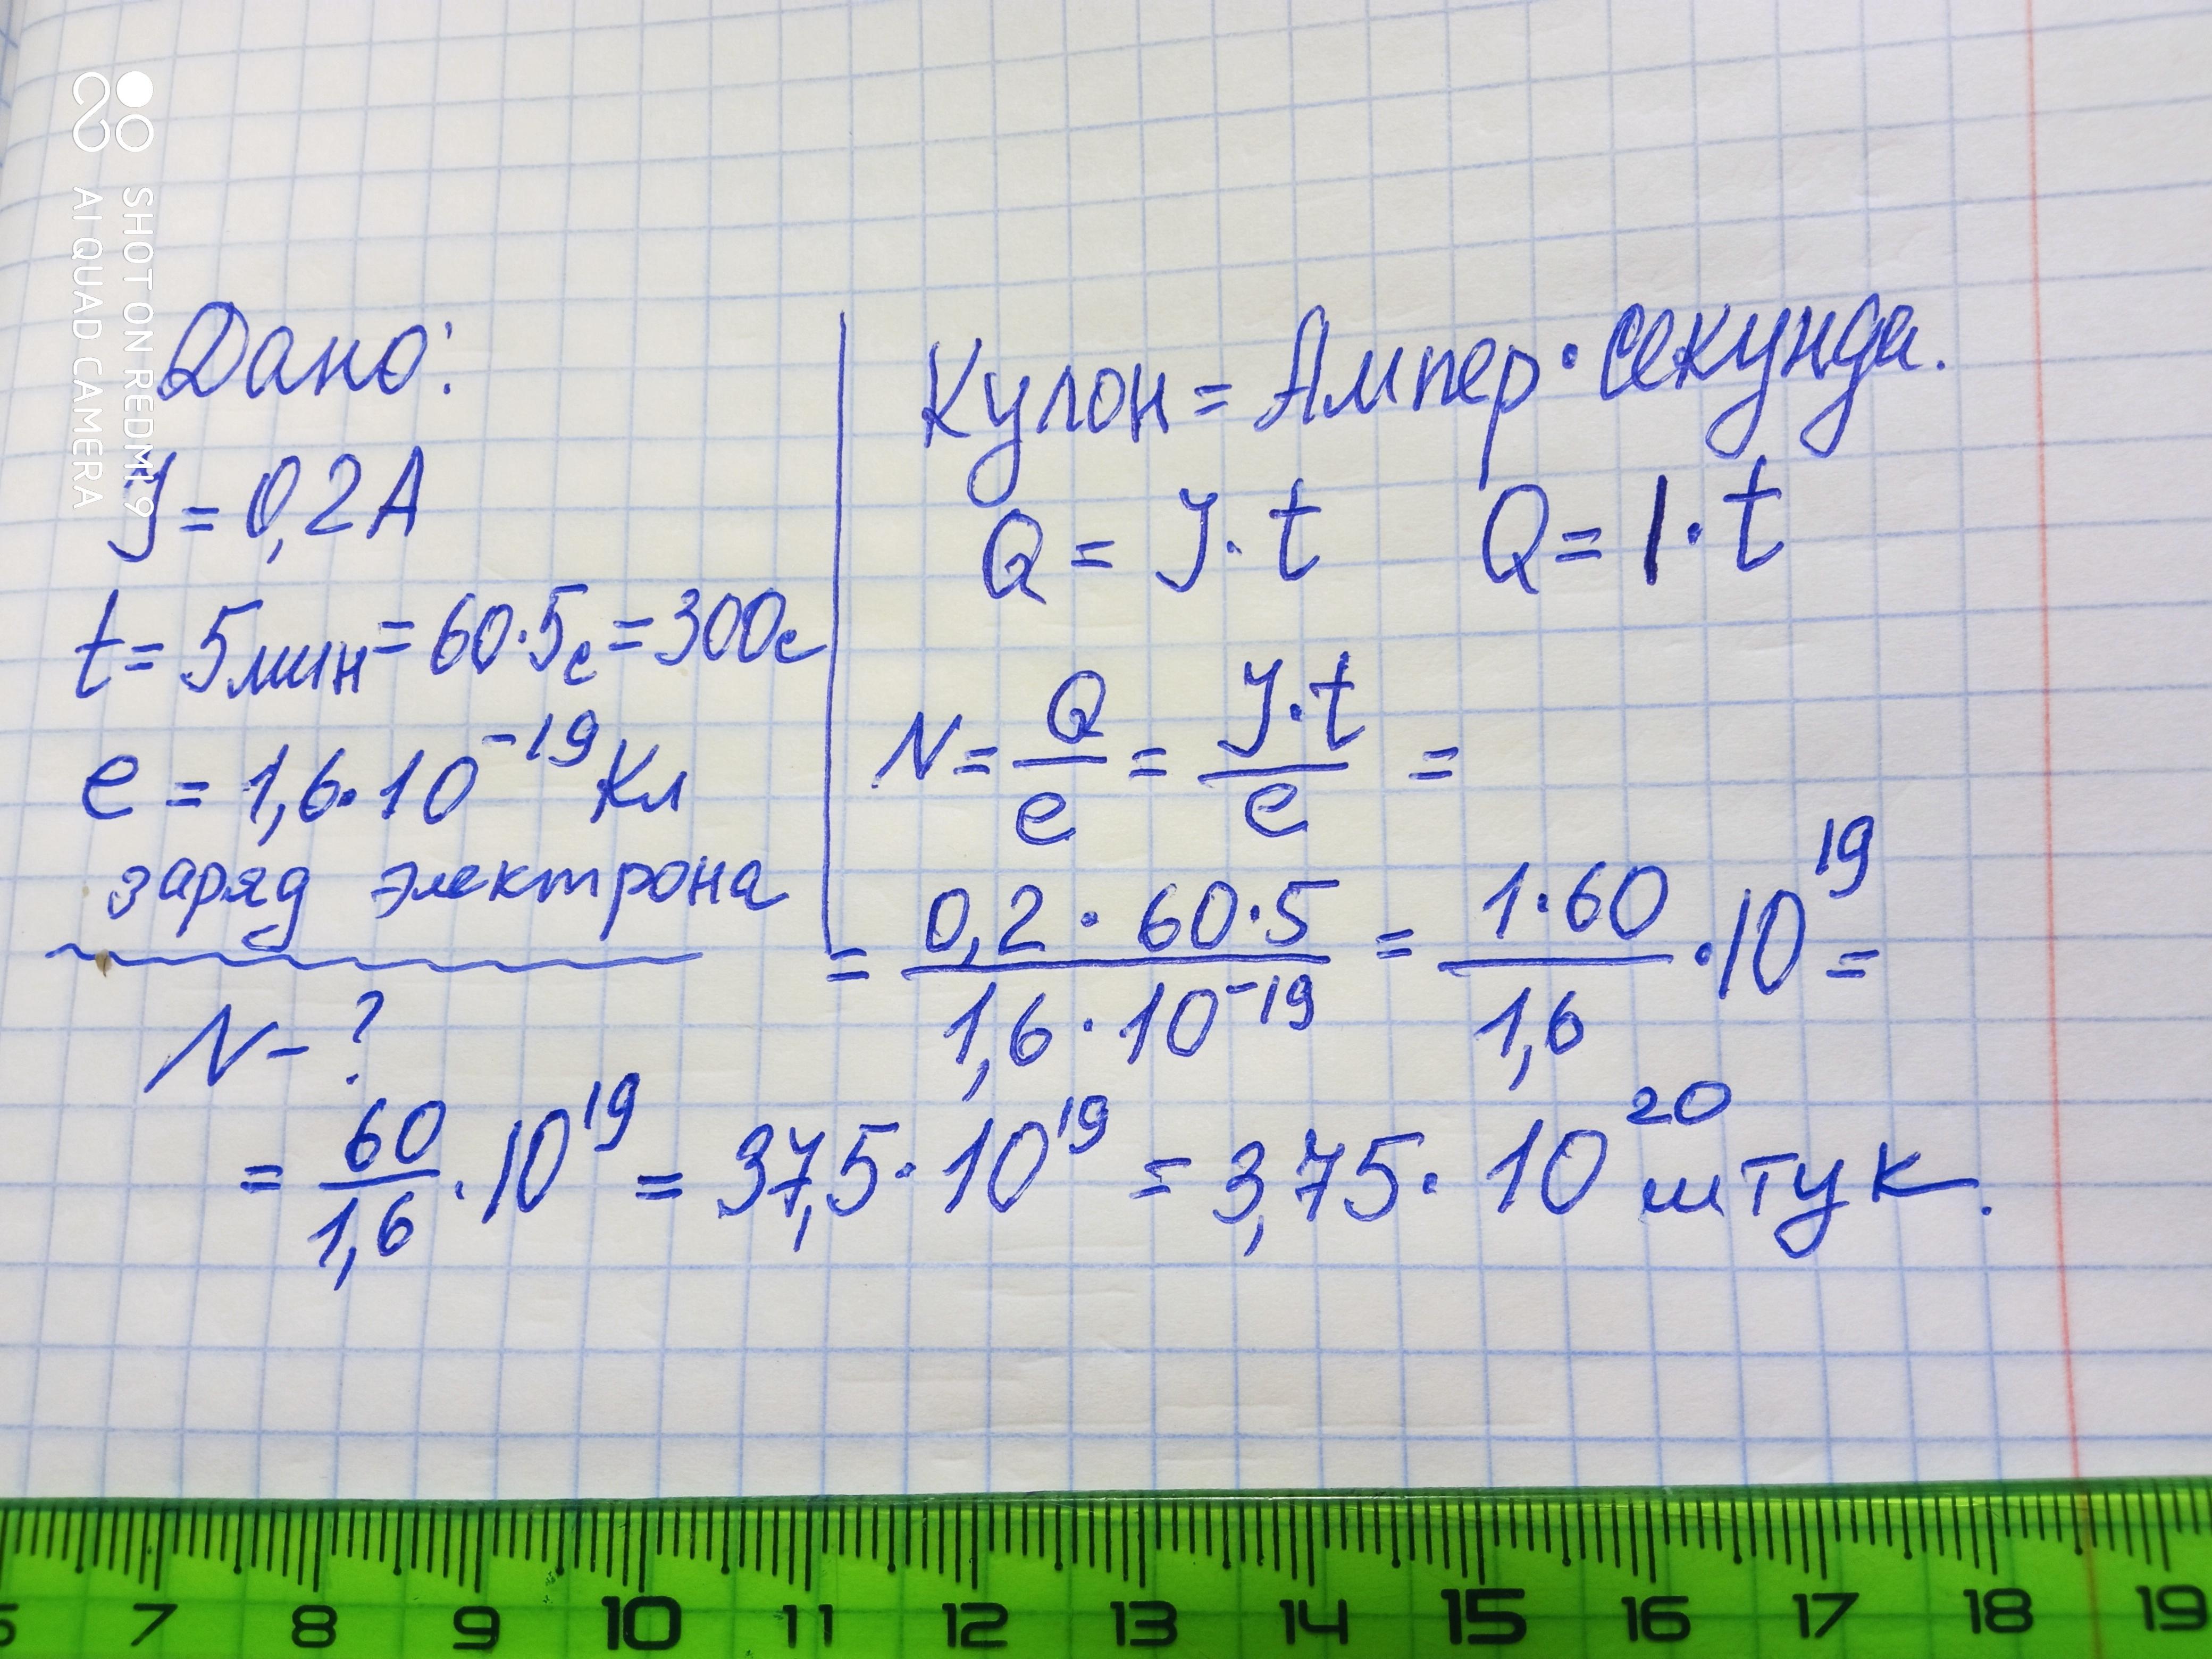 SHOT ON REDMI 9
AI QUAD CAMERA
Дано:
J = 0,2 A
t = 5 мин = 60·5 с = 300 с
e = 1,6·10⁻¹⁹ Кл
заряд электрона
N - ?
Кулон = Ампер · секунда.
Q = J · t Q = I · t
N = Q/e = J·t/e =
= 0,2 · 60·5 / 1,6 · 10⁻¹⁹ = 1·60/1,6 · 10¹⁹ =
= 60/1,6 · 10¹⁹ = 37,5 · 10¹⁹ = 3,75 · 10²⁰ штук.
7 8 9 10 11 12 13 14 15 16 17 18 19